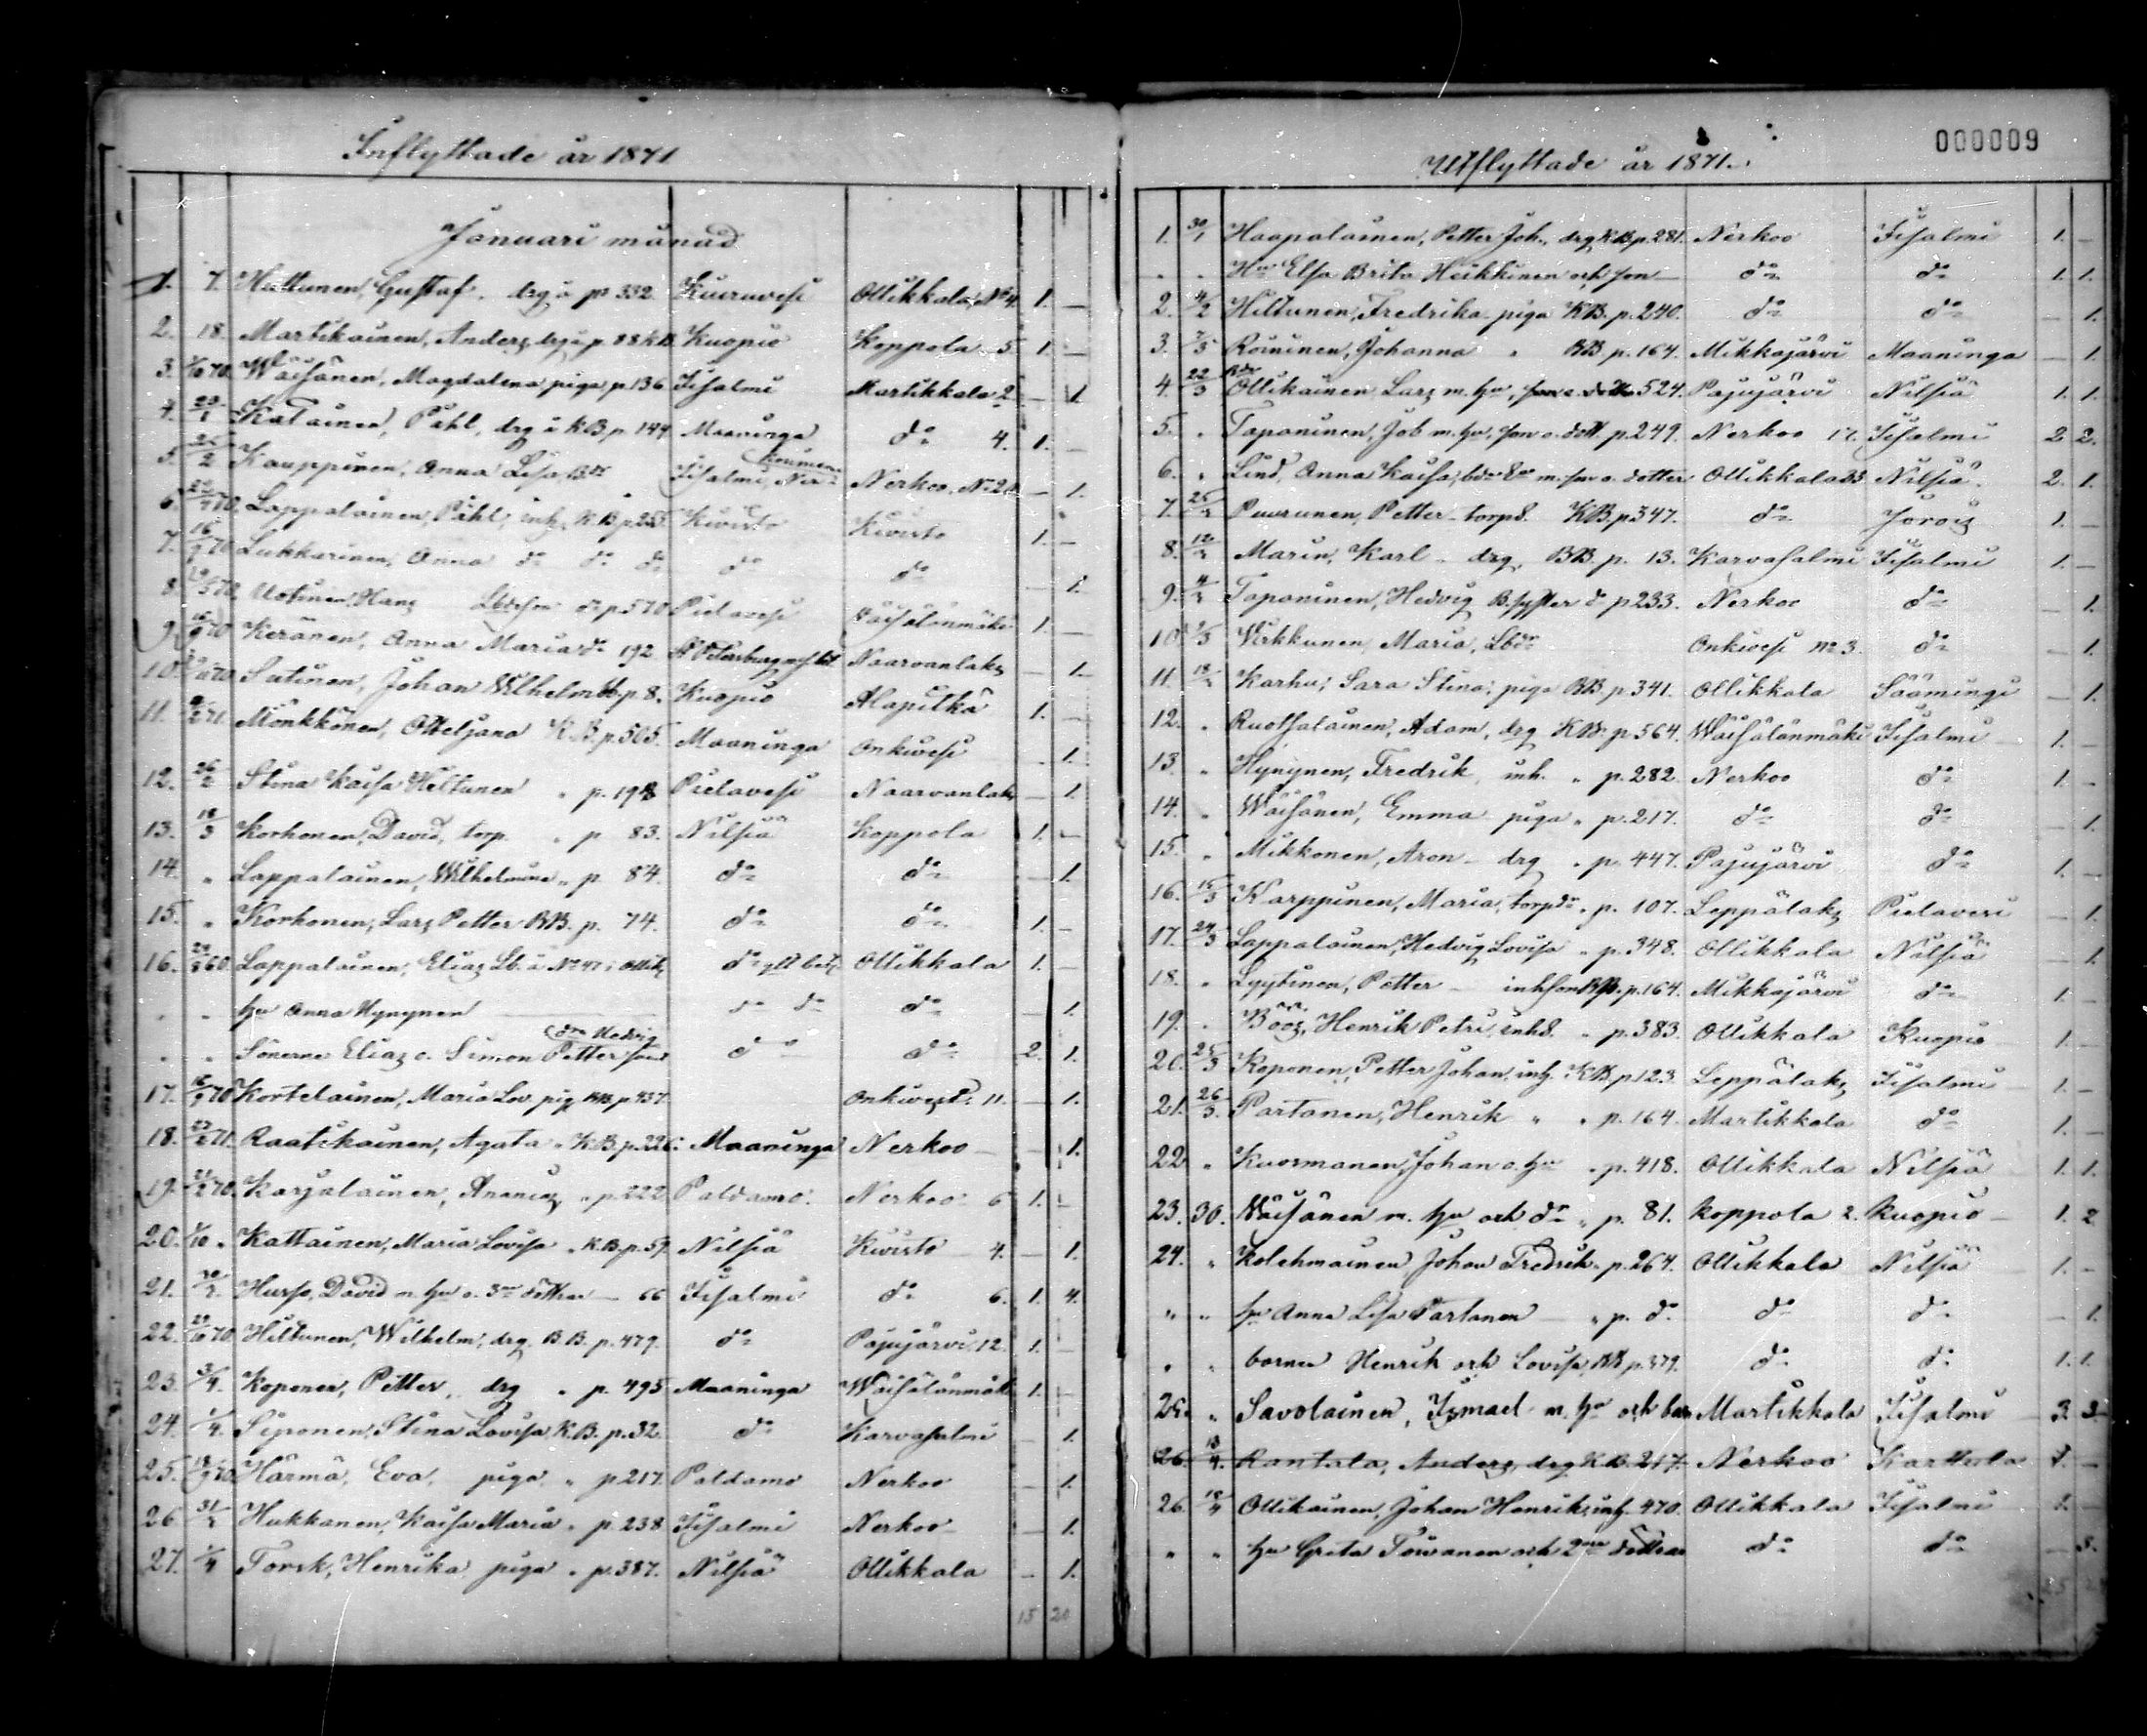 Inflyttade år 1871
Januari månad
1. 7. Huttunen, Gustaf, drg å p. 332. Kiuruvesi Ollikkala, No 4. 1. —
2. 18. Martikainen, Anders, drg å p. 88 KB. Kuopio Koppola 5 1. —
3. 70. Wäisänen, Magdalena piga p. 136 Iisalmi Martikkala 2 — 1.
4. 29/1 Katainen, Påhl, drg å K.B. p. 144 Maaninga do 4. 1. —
5. Kauppinen, Anna Lisa Iisalmi Nerkoo, No 20 — 1.
6. 70. Lappalainen, Påhl, inh. K.B. p. 255. Kivisto Kivisto 1. —
7. 16/9 70 Lukkarinen, Anna do do do do do — 1.
8. 70. Uotinen Hans do p. 570 Pielavesi Väisälänmäki 1. —
9. 16/9 70 Keränen, Anna Maria do 192 St Petersburg Naarvanlaks — 1.
10. 70 Sutinen, Johan Wilhelm p. 8. Kuopio Alapitkä 1. —
11. 71. Mönkkönen, Otteljana K.B. p. 505. Maaninga Onkivesi — 1.
12. 26/2 Stina Kaisa Hiltunen " p. 198 Pielavesi Naarvanlaks — 1.
13. 18/3 Korhonen, David, torp. " p 83. Nilsiä Koppola 1. —
14. " Lappalainen, Wilhelmina " p. 84. do do — 1.
15. " Korhonen, Lars Petter BB. p. 74. do do 1. —
16. 60. Lappalainen, Elias Lb. å No 47 i Ollik do Ollikkala 1. —
" " hu Anna Hynynen do do do — 1.
dr Hedvig
" " Sönerne Elias o. Simon Petter do do 2. 1.
17. 16/9 70 Kortelainen, Maria Lov. pig BB. p. 437. Onkivesi 11. — 1.
18. 71. Raatikainen, Agata " K.B. p. 226. Maaninga Nerkoo — 1.
19. 70. Karjalainen, Ananias " p. 222 Paldamo. Nerkoo 6 1. —
20. 1/10 " Kattainen, Maria Lovisa " K.B. p. 59. Nilsiä Kivisto 4. — 1.
21. Husso, David m. hu o. 3ne döttrar — 66 Iisalmi do 6. 1. 4.
22. 29/10 70 Hiltunen, Wilhelm, drg. B.B. p. 479. do Pajujärvi 12. 1. —
23. 3/4. Koponen, Petter, drg " p. 495 Maaninga Wäisälänmäki 1. —
24. 1/4. Siponen, Stina Lovisa K.B. p. 32. do Karvasalmi — 1.
25. 18/9 70 Härmä, Eva, piga " p 217. Paldamo Nerkoo — 1.
26. Hukkanen, Kaisa Maria " p. 238 Iisalmi Nerkoo — 1.
27. 1/4 Torsk, Henrika piga " p. 387. Nilsiä Ollikkala — 1.
15 20
000009
Utflyttade år 1871.
1. 30/1 Haapalainen, Petter Joh., drg K.B. p. 281. Nerkoo Iisalmi 1. —
" " Hu Elsa Brita Heikkinen och son — do do 1. 1.
2. 4/2 Hiltunen, Fredrika piga KB. p. 240. do do — 1.
3. Roininen, Johanna " BB p. 164. Mikkajärvi Maaninga — 1.
4. 22/3 Ollikainen Lars m. hu, son o. dotter 524. Pajujärvi Nilsiä 1. 1.
5. " Taponinen, Job m. hu, son o. dott. p. 249. Nerkoo 17. Iisalmi 2 2.
6. " Lind, Anna Kaisa, m. son o. dotter Ollikkala 33 Nilsiä. 2. 1.
7. Puurunen, Petter torps. KB. p 347. do Jorois 1. —
8. Marin, Karl — drg, BB. p. 13. Karvasalmi Iisalmi 1. —
9. Taponinen, Hedvig B. syster do p 233. Nerkoo do — 1.
10. Wirkkunen Maria, Onkivesi No 3. do — 1.
11. Karhu, Sara Stina, piga BB. p. 341. Ollikkala Säämingi — 1.
12. " Ruotsalainen, Adam, drg KB. p. 564. Wäisälänmäki Iisalmi 1. —
13. " Hynynen, Fredrik, inh. " p. 282. Nerkoo do 1. —
14. " Wäisänen, Emma piga " p. 217. do do — 1.
15. " Mikkonen, Aron — drg " p. 447. Pajujärvi do 1. —
16. 15/3 Karppinen, Maria, " p. 107. Leppälaks Pielavesi — 1.
17. 24/3 Lappalainen, Hedvig Lovisa " p. 348. Ollikkala Nilsiä — 1.
18. " Lyytinen, Petter — inhson BB. p. 164. Mikkajärvi do 1. —
19. " Böös, Henrik Petri, inhs. " p. 383. Ollikkala Kuopio 1. —
20. 25/3 Koponen, Petter Johan, inh. KB. p 123. Leppälaks Iisalmi 1. —
21. 26/3. Partanen, Henrik " " p. 164. Martikkala do 1. —
22 " Kuosmanen, Johan o. hu " p. 418. Ollikkala Nilsiä 1. 1.
23. 30. Wäisänen m. hu och dr " p. 81. Koppola 2. Kuopio 1. 2
24. " Kolehmainen Johan Fredrik " p. 264. Ollikkala Nilsiä 1. —
" " hu Anna Lisa Partanen — " p. do do do — 1.
" " barnen Henrik och Lovisa, BB p. 379. do do 1. 1.
25. " Savolainen, Ismael m. hu och barn Martikkala Iisalmi 3. 3
26. 13/4. Rantala, Anders, drg K.B. 217. Nerkoo Karttula 1. —
26. 18/4 Ollikainen, Johan Henrik, inh. 470. Ollikkala Iisalmi 1. —
" " hu Greta Toivanen och 2ne döttrar do do — 3.